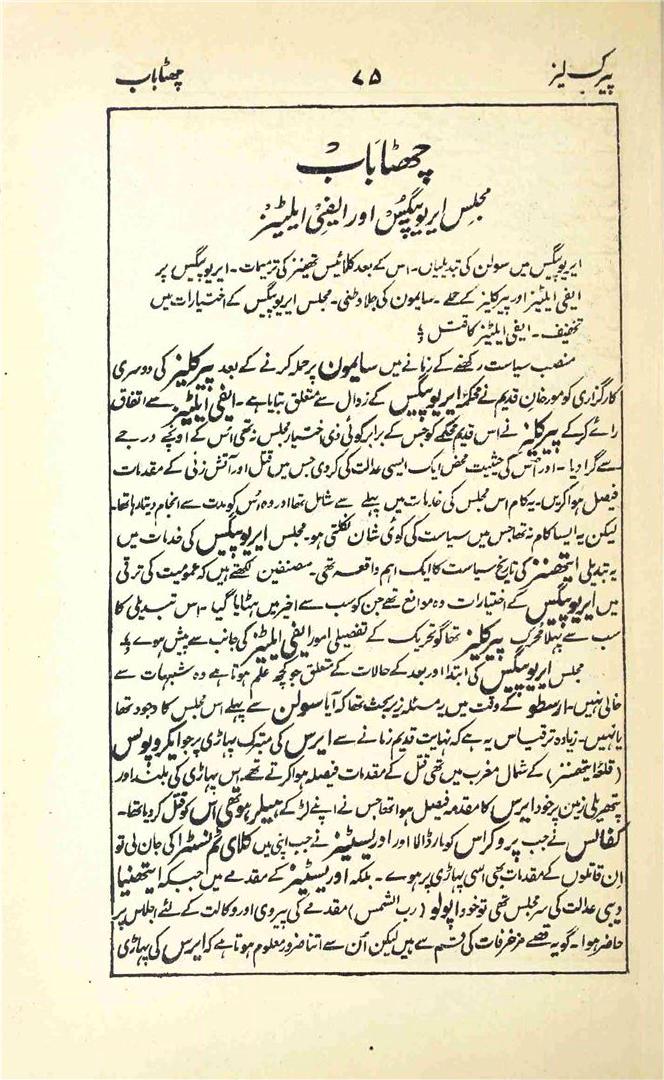 پیرکلیز ۷۵ چھٹا باب
چھٹا باب
مجلس ایریوپیگس اور ایفی ایلٹیز
ایریوپیگس میں سولن کی تبدیلیاں۔ اس کے بعد کلائیس تھینز کی ترمیمات۔ ایریوپیگس پر
ایفی ایلٹیز اور پیرکلیز کے حملے۔ سایمون کی جلاوطنی۔ مجلس ایریوپیگس کے اختیارات میں
تخفیف۔ ایفی ایلٹیز کا قتل
منصب سیاست رکھنے کے زمانے میں سایمون پر حملہ کرنے کے بعد پیرکلیز کی دوسری
کارگزاری کو مورخان قدیم نے محکمۂ ایریوپیگس کے زوال سے متعلق بتایا ہے۔ ایفی ایلٹیز سے اتفاق
رائے کرکے پیرکلیز نے اس قدیم محکمے کو جس کے برابر کوئی ذی اختیار مجلس نہ تھی اس کے اونچے درجے
سے گرا دیا۔ اور اس کی حیثیت محض ایک ایسی عدالت کی کردی جس میں قتل اور آتش زنی کے مقدمات
فیصل ہوا کریں۔ یہ کام اس مجلس کی خدمات میں پہلے سے شامل تھا اور وہ اس کو مدت سے انجام دیتا رہا تھا۔
لیکن یہ ایسا کام نہ تھا جس میں سیاست کی کوئی شان نکلتی ہو۔ مجلس ایریوپیگس کی خدمات میں
یہ تبدیلی ایتھنز کی تاریخ سیاست کا ایک اہم واقعہ تھی۔ مصنفین لکھتے ہیں کہ عمومیت کی ترقی
میں ایریوپیگس کے اختیارات وہ موانع تھے جن کو سب سے اخیر میں ہٹایا گیا۔ اس تبدیلی کا
سب سے پہلا محرک پیرکلیز تھا گو تحریک کے تفصیلی امور ایفی ایلٹیز کی جانب سے پیش ہوے
مجلس ایریوپیگس کی ابتدا اور بعد کے حالات کے متعلق جو کچھ علم ہوتا ہے وہ شبہات سے
خالی نہیں۔ ارسطو کے وقت میں یہ مسئلہ زیر بحث تھا کہ آیا سولن سے پہلے اس مجلس کا وجود تھا
یا نہیں۔ زیادہ تر قیاس یہ ہے کہ نہایت قدیم زمانے سے ایرس کی متبرک پہاڑی پر جو ایکروپولس
(قلعۂ ایتھنز) کے شمال مغرب میں تھی قتل کے مقدمات فیصلہ ہوا کرتے تھے۔ اس پہاڑی کی بلند اور
پتھریلی زمین پر خود ایرس کا مقدمہ فیصل ہوا تھا جس نے اپنے لڑکے ہیلر ہوتھی اس کو قتل کردیا تھا۔
کفالس نے جب پروکرس کو مار ڈالا اور اوریسٹیز نے جب اپنی ماں کلائی ٹم نسٹرا کی جان لی تو
ان قاتلوں کے مقدمات بھی اسی پہاڑی پر ہوے۔ بلکہ اوریسٹیز کے مقدمے میں جبکہ ایتھنیا
دیبی عدالت کی سر مجلس تھی تو خود اپولو (رب الشمس) مقدمے کی پیروی اور وکالت کے لئے اجلاس پر
حاضر ہوا۔ گو یہ قصے مزخرفات کی قسم سے ہیں لیکن ان سے اتنا ضرور معلوم ہوتا ہے کہ ایرس کی پہاڑی